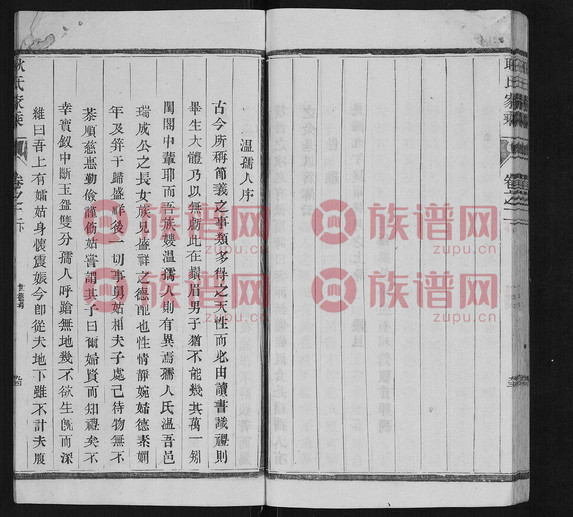 耿氏家乘
卷之一
溫孺人序
古今所稱節義之事類多得之天性而必由讀書識禮則
畢生大體乃以無虧此在鬚眉男子猶不能幾其萬一矧
閨閣中輩耶而吾族嫂溫孺人則有異焉孺人氏溫吾邑
瑞成公之長女族兄盛群之德配也性情靜婉婦德素嫻
年及笄于歸盛群後一切事舅姑相夫子處己待物無不
恭順慈惠勤儉謹飭姑嘗謂其子曰爾婦賢而知禮矣不
幸寶釵中斷玉盌雙分孺人呼搶無地幾不欲生旣而深
維曰吾上有孀姑身懷震娠今卽從夫地下雖不計夫腹
耿氏家乘
卷之一
下
族谱网
zupu.cn
族谱网
zupu.cn
族谱网
zupu.cn
族谱网
zupu.cn